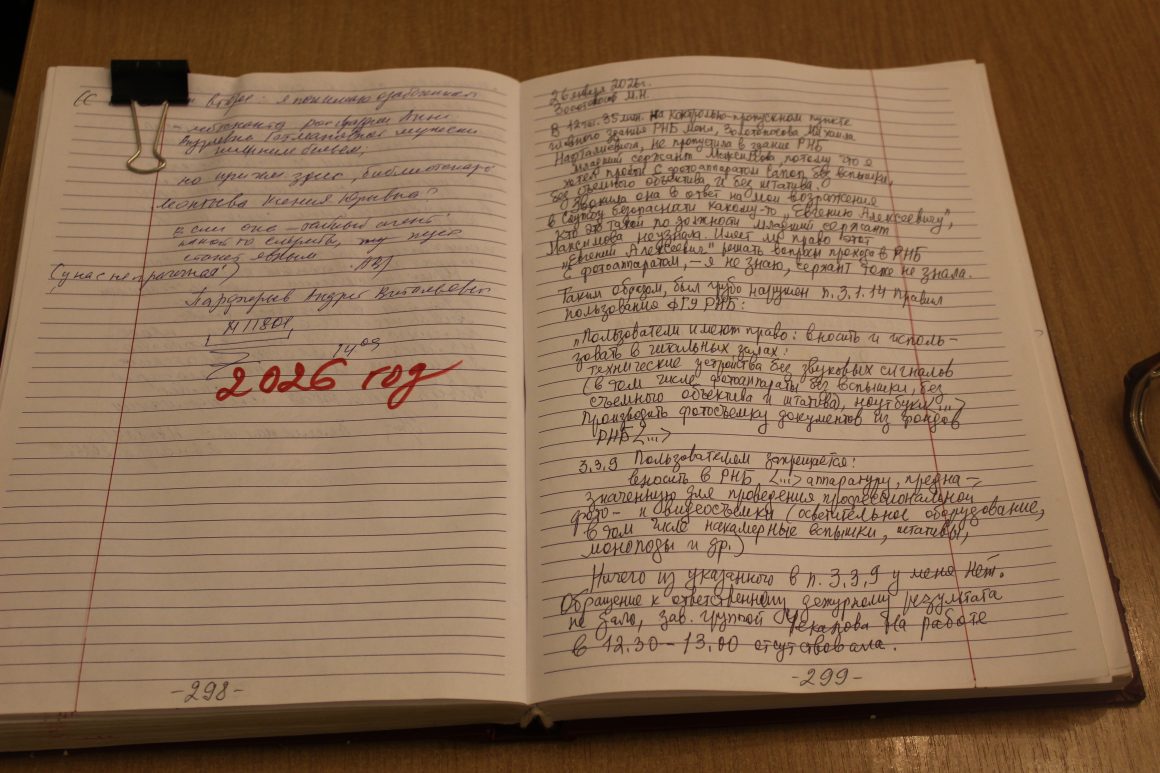 второе: я понимаю озабоченность
но при чём здесь библиотекарь
если она —
какой-то
станет явным
(у нас не прачечная!)
Андрей Витальевич
2026 год
-298-
26 января 2026г.
Золотоносов М.Н.
В 12 час. 35 мин. на контрольно-пропускном пункте
главного здания РНБ меня, Золотоносова Михаила
Нафталиевича, не пропустила в здание РНБ
младший сержант Максимова, потому что я
хотел пройти с фотоаппаратом Canon без вспышки,
без съемного объектива и без штатива.
Звонила она в ответ на мои возражения
в Службу безопасности какому-то „Евгению Алексеевичу",
кто это такой по должности младший сержант
Максимова не узнала. Имеет ли право этот
„Евгений Алексеевич" решать вопрос прохода в РНБ
с фотоаппаратом, — я не знаю, сержант тоже не знала.
Таким образом, был грубо нарушен п. 3.1.14 Правил
пользования ФГУ РНБ:
„Пользователи имеют право: вносить и исполь-
зовать в читальных залах:
технические устройства без звуковых сигналов
(в том числе фотоаппараты без вспышки, без
съемного объектива и штатива, ноутбуки <...>
Производить фотосъемку документов из фондов
РНБ <...>
3.3.9 Пользователям запрещается:
вносить в РНБ <...> аппаратуру, предна-
значенную для проведения профессиональной
фото- и видеосъемки (осветительное оборудование,
в том числе накамерные вспышки, штативы,
моноподы и др.)
Ничего из указанного в п. 3.3.9 у меня нет.
Обращение к ответственному дежурному результата
не дало, зав. группой Чекалова на работе
в 12.30 – 13.00 отсутствовала.
-299-